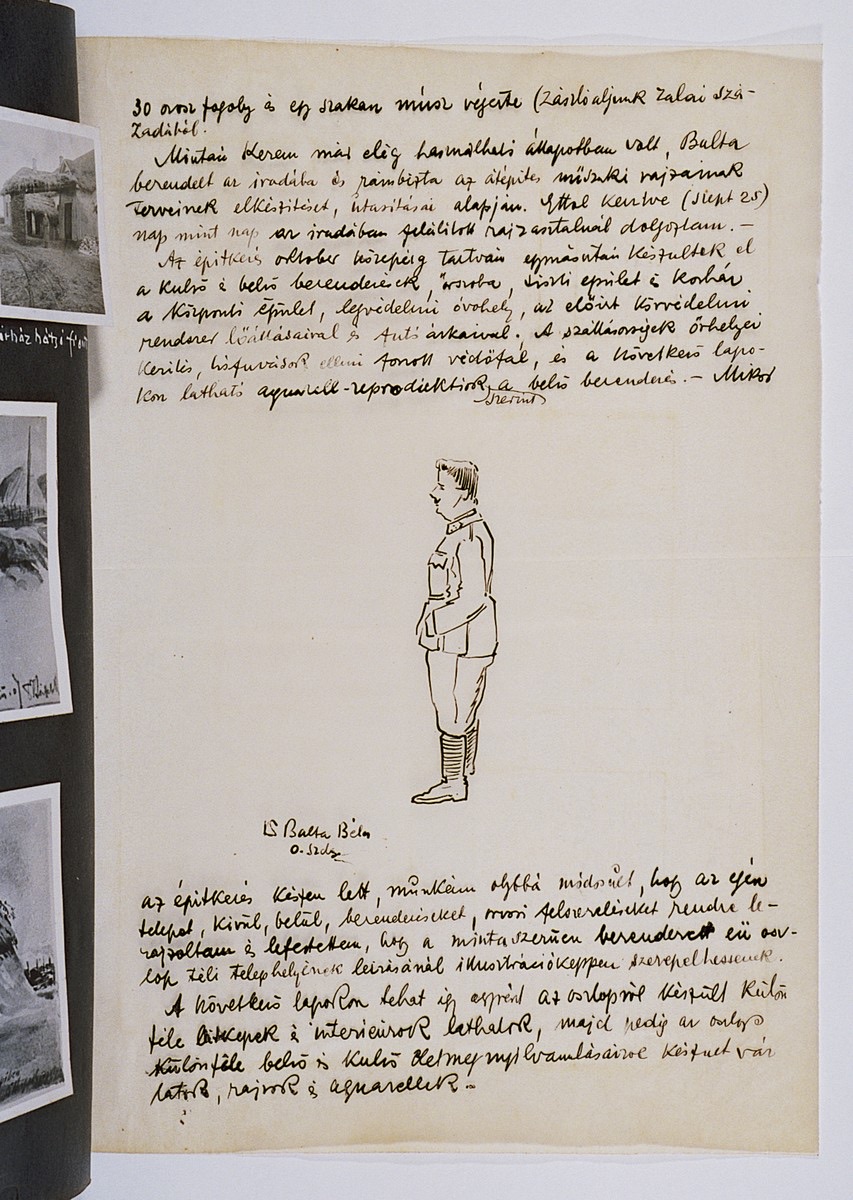 árház hátsó
30 orosz fogoly és egy szakasz műsz végezte (Zászlóaljunk Zalai szá-
zadából.
Miután Kezem már elég használható állapotban volt, Balta
berendelt az irodába és rámbízta az átépítés műszaki rajzainak
terveinek elkészítését, utasításai alapján. Ettől kezdve (Szept 25)
nap mint nap az irodában felállított rajzasztalnál dolgoztam. —
Az építkezés oktober közepéig tartván egymásután készültek el
a külső és belső berendezések, őrszoba, tiszti épület és korház
a Központi épület, légvédelmi óvóhely, az előírt körvédelmi
rendszer lőállásaival és futó árkaival. A szállásövezet őrhelyei
kerítés, hófuvások elleni fonott védőfal, és a következő lapo-
kon látható aquarell-reproduktiok szerint a belső berendezés. — Mikor
Balta Béla
o. szds
az építkezés készen lett, munkám olykbá módosult, hogy az egész
telepet, kívül, belül, berendezéseket, orvosi felszereléseket rendre le-
rajzoltam és lefestettem, hogy a mintaszerűen berendezett eü osz-
lop téli telephelyének leírásánál illusztrációképpen szerepelhessenek.
A következő lapokon tehát így egyrészt az oszlopról készült külön
féle látképek és interieurok láthatok, majd pedig az oszlop
különféle belső és külső életmegnyilvánulásairól készült váz
latok, rajzok és aquarellek. —